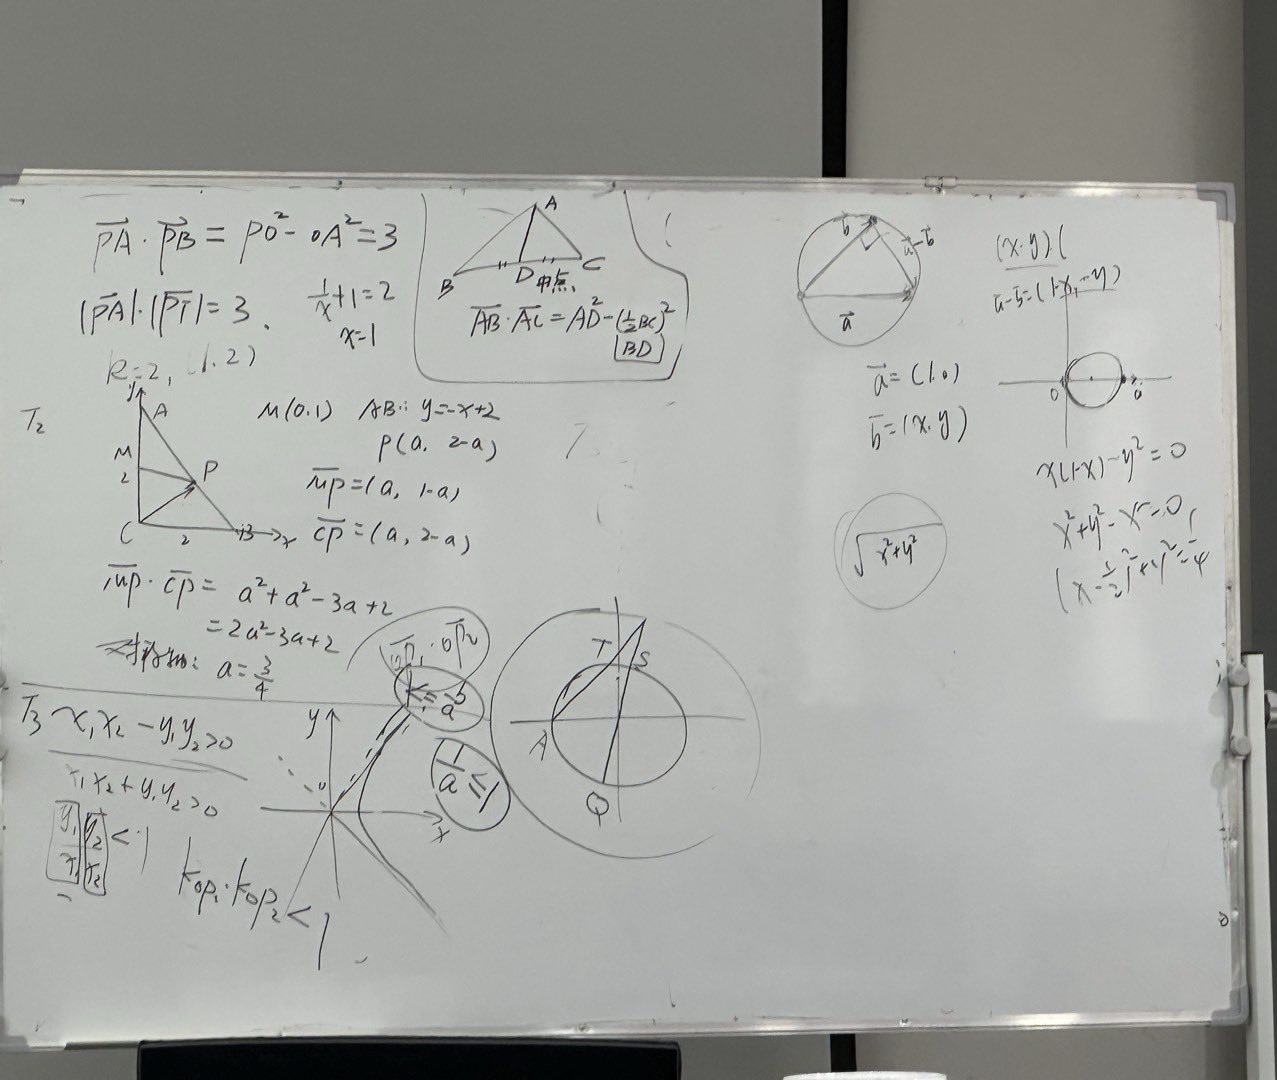 PA · PB = PO² - OA² = 3
|PA| · |PT| = 3.
1/x + 1 = 2
x = 1
k = 2, (1, 2)
A
B
D
中点
C
AB · AC = AD² - (½BC)²
BD
T₂
y
A
M
2
P
C
2
B
x
M(0,1) AB: y = -x+2
P(a, 2-a)
MP = (a, 1-a)
CP = (a, 2-a)
MP · CP = a² + a² - 3a + 2
= 2a² - 3a + 2
a = 3/4
T₃ x₁x₂ - y₁y₂ > 0
x₁x₂ + y₁y₂ > 0
y₁/x₁ y₂/x₂ < 1
k_OP₁ · k_OP₂ < 1
OP₁ · OP₂
y
0
x
1/a ≤ 1
T
S
A
Q
b
a - b
a
a = (1, 0)
b = (x, y)
√x²+y²
(x, y) · (
a - b = (1-x, -y)
0
a
x(1-x) - y² = 0
x² + y² - x = 0
(x - ½)² + y² = ¼